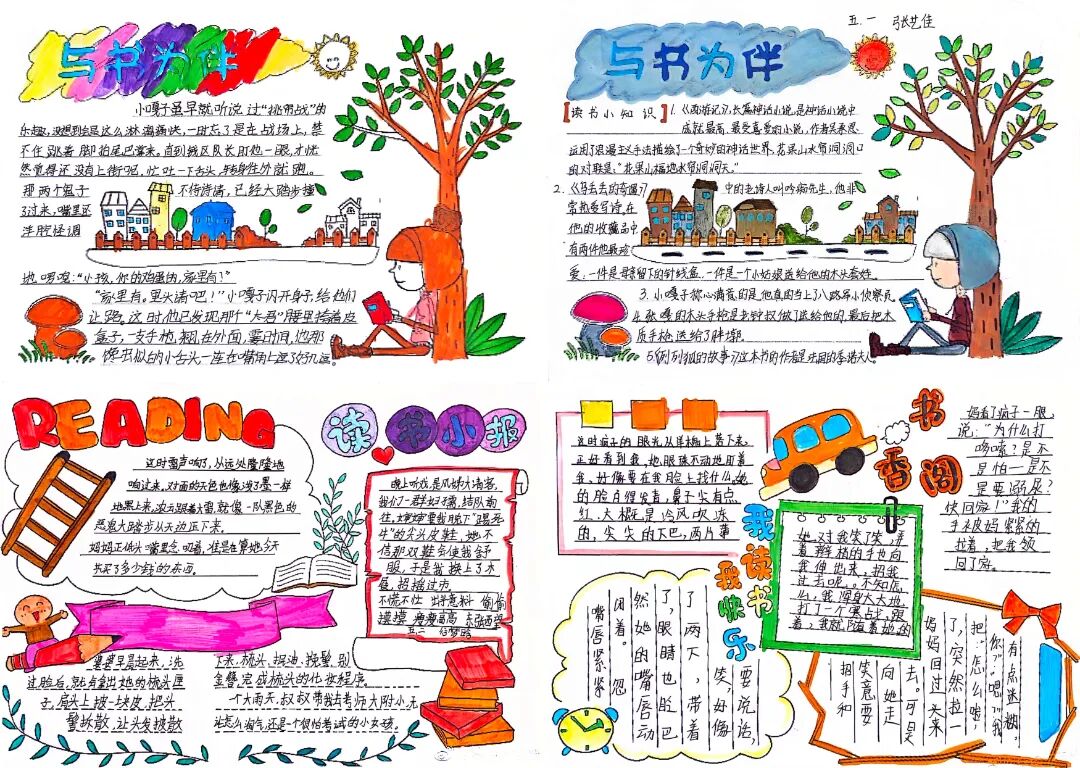 与书为伴
小嘎子虽早就听说过“挑帘战”的
乐趣，没想到会是这么淋漓痛快，一时忘了是在战场上，禁
不住跳着脚拍尾巴骂来。直到钱区队长盯他一眼，才恍
然觉得还没有上街呢，忙吐一下舌头，转身往外就跑。
那两个鬼子
不待搭满，已经大踏步撞
了过来，嘴里还
洋腔怪调
地唠唠：“小孩，你的鸡蛋的，家里有？”
“家里有。里头满吧！”小嘎子闪开身子，给他们
让路。这时他已发现那个“大哥”腰里掖着皮
盒子，一支手枪
五.一 张艺佳
与书为伴
【读书小知识】
1.《西游记》，长篇神话小说，是神话小说中
成就最高、最受喜爱的小说，作者吴承恩，
运用了浪漫主义手法描绘了一个奇妙的神话世界，花果山水帘洞洞口
的对联是：“花果山福地水帘洞洞天。”
2.《马丢丢的奇遇》
中的老诗人叫吟痴先生，他非
常热爱写诗，在
他的收藏品中
有两件他最珍
爱，一件是母亲留下的针线盒，一件是一个小姑娘送给他的木头套娃。
3.小嘎子称心满意的是他真的当上了八路军小侦察员。
4.张嘎的木头手枪是老钟叔做了送给他的，最后把木
质手枪送给了胖墩。
5.《列那狐的故事》这本书的作者是法国的季诺夫人。
READING
读书小报
这时雷声响了，从远处隆隆地
响过来。对面的天色也像泼了墨一样
地黑上来，浓云跟着大雷，就像一队黑色的
恶鬼大踏步从天边下来。
妈妈正低头嘴里念叨着，准是在算她今天
共买了多少钱的东西。
晚上听戏，是风娣大请客，
我们一群好子孺，结队前
信那双鞋会使我舒
服，于是我换上了木
屐，招摇过市
不慌不忙 出乎意料 偷偷
摸摸
婆婆早晨起来，洗
过脸后，就右拿出她的梳头匣
子，肩头上披一块皮，把头
髻拆散，让头发披散
下来，梳头、抿油、挽髻、别
金簪，完成梳头的仪妆程序。
一个大雨天，叔叔带我去考师大附小，无
论怎么淘气，还是一个很怕考试的小女孩。
书香阁
我读书 我快乐
这时疯子的眼光从洋梳上落下来，
正好看到我，她眼珠不动地盯着
我，好像要在我脸上找什么，她
的脸白得发青，鼻子尖有点
红，大概是冷风吹冻
的，尖尖的下巴，两片薄
嘴唇紧紧
闭着。忽
然她的嘴唇动
了，眼睛也眨巴
了两下，带着
笑，好像
要说话，
她，对我笑了笑，弄
着辫梢的手也向
我伸出来，招我
过去呢。不知怎
么，我浑身大大地
打了一个寒战，跟
着，我就随着她的
招手和
笑意要
向她走
去。可是
妈妈回过头来
了，突然拉一
把：“怎么啦，
你？”“嗯？”我
有点迷糊。
妈看了疯子一眼，
说：“为什么打
哆嗦？是不
是怕一是不
是要溺尿？
快回家！”我的
手被妈紧紧的
拉着，把我领
回了家。